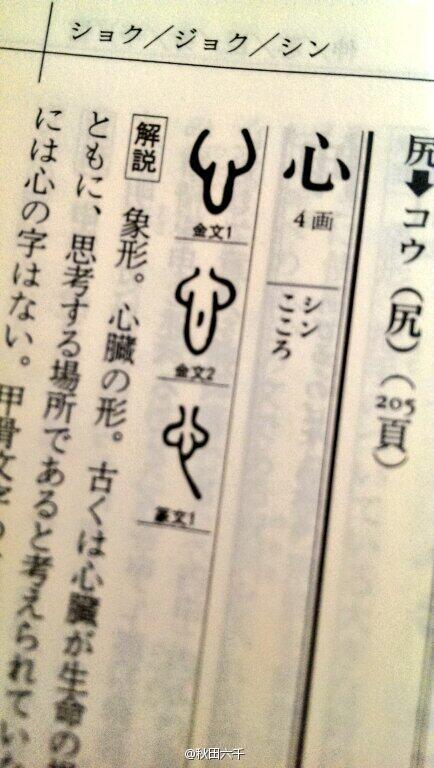 ショク／ジョク／シン
尻➡コウ（尻）（205頁）
心
4画
シン
こころ
金文1
金文2
篆文1
解説
象形。心臓の形。古くは心臓が生命の
ともに、思考する場所であると考えられてい
には心の字はない。甲骨文字の
@秋田六千